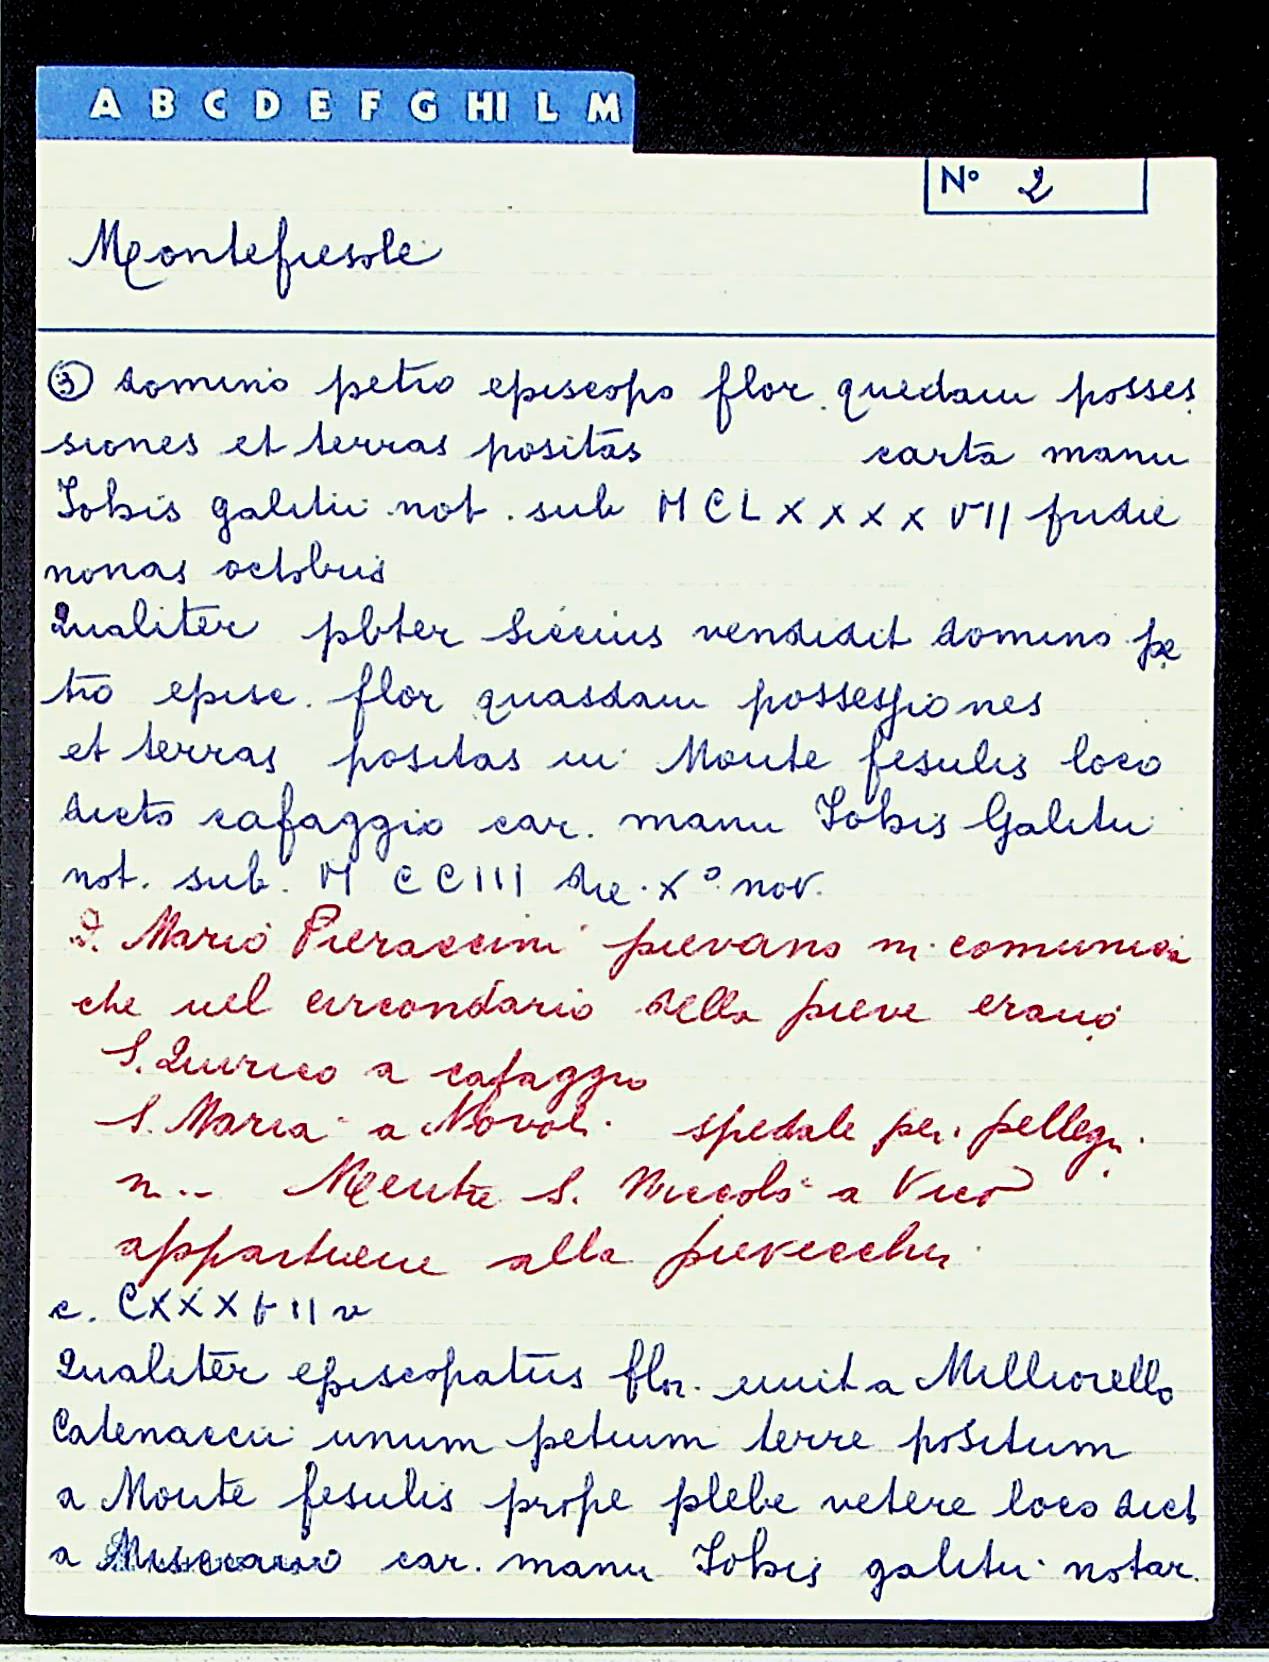 A B C D E F G HI L M
N° 2
Montefiesole
③ domino petro episcopo flor. quedam posses
siones et terras positas carta manu
Iohis galitii not. sub MCLXXXXVII pridie
nonas octobris
Qualiter pbter vendidit domino pe
tro episc. flor quasdam possessiones
et terras positas in Monte fesulis loco
dicto cafaggio car. manu Iohis Galitii
not. sub. M CCIII die X° nov.
D. Mario Pieraccini pievano mi comunica
che nel circondario della pieve erano
S. Quirico a cafaggio
S. Maria a Novoli. spedale per pellegr.
ni.. Mentre S. Niccolò a Vico
appartiene alla pievecchia.
c. CXXXVII v
Qualiter episcopatus flor. emit a Milliorello
Catenaccii unum petium terre positum
a Monte fesulis prope plebe vetere loco dict
a car. manu Iohis galitii notar.